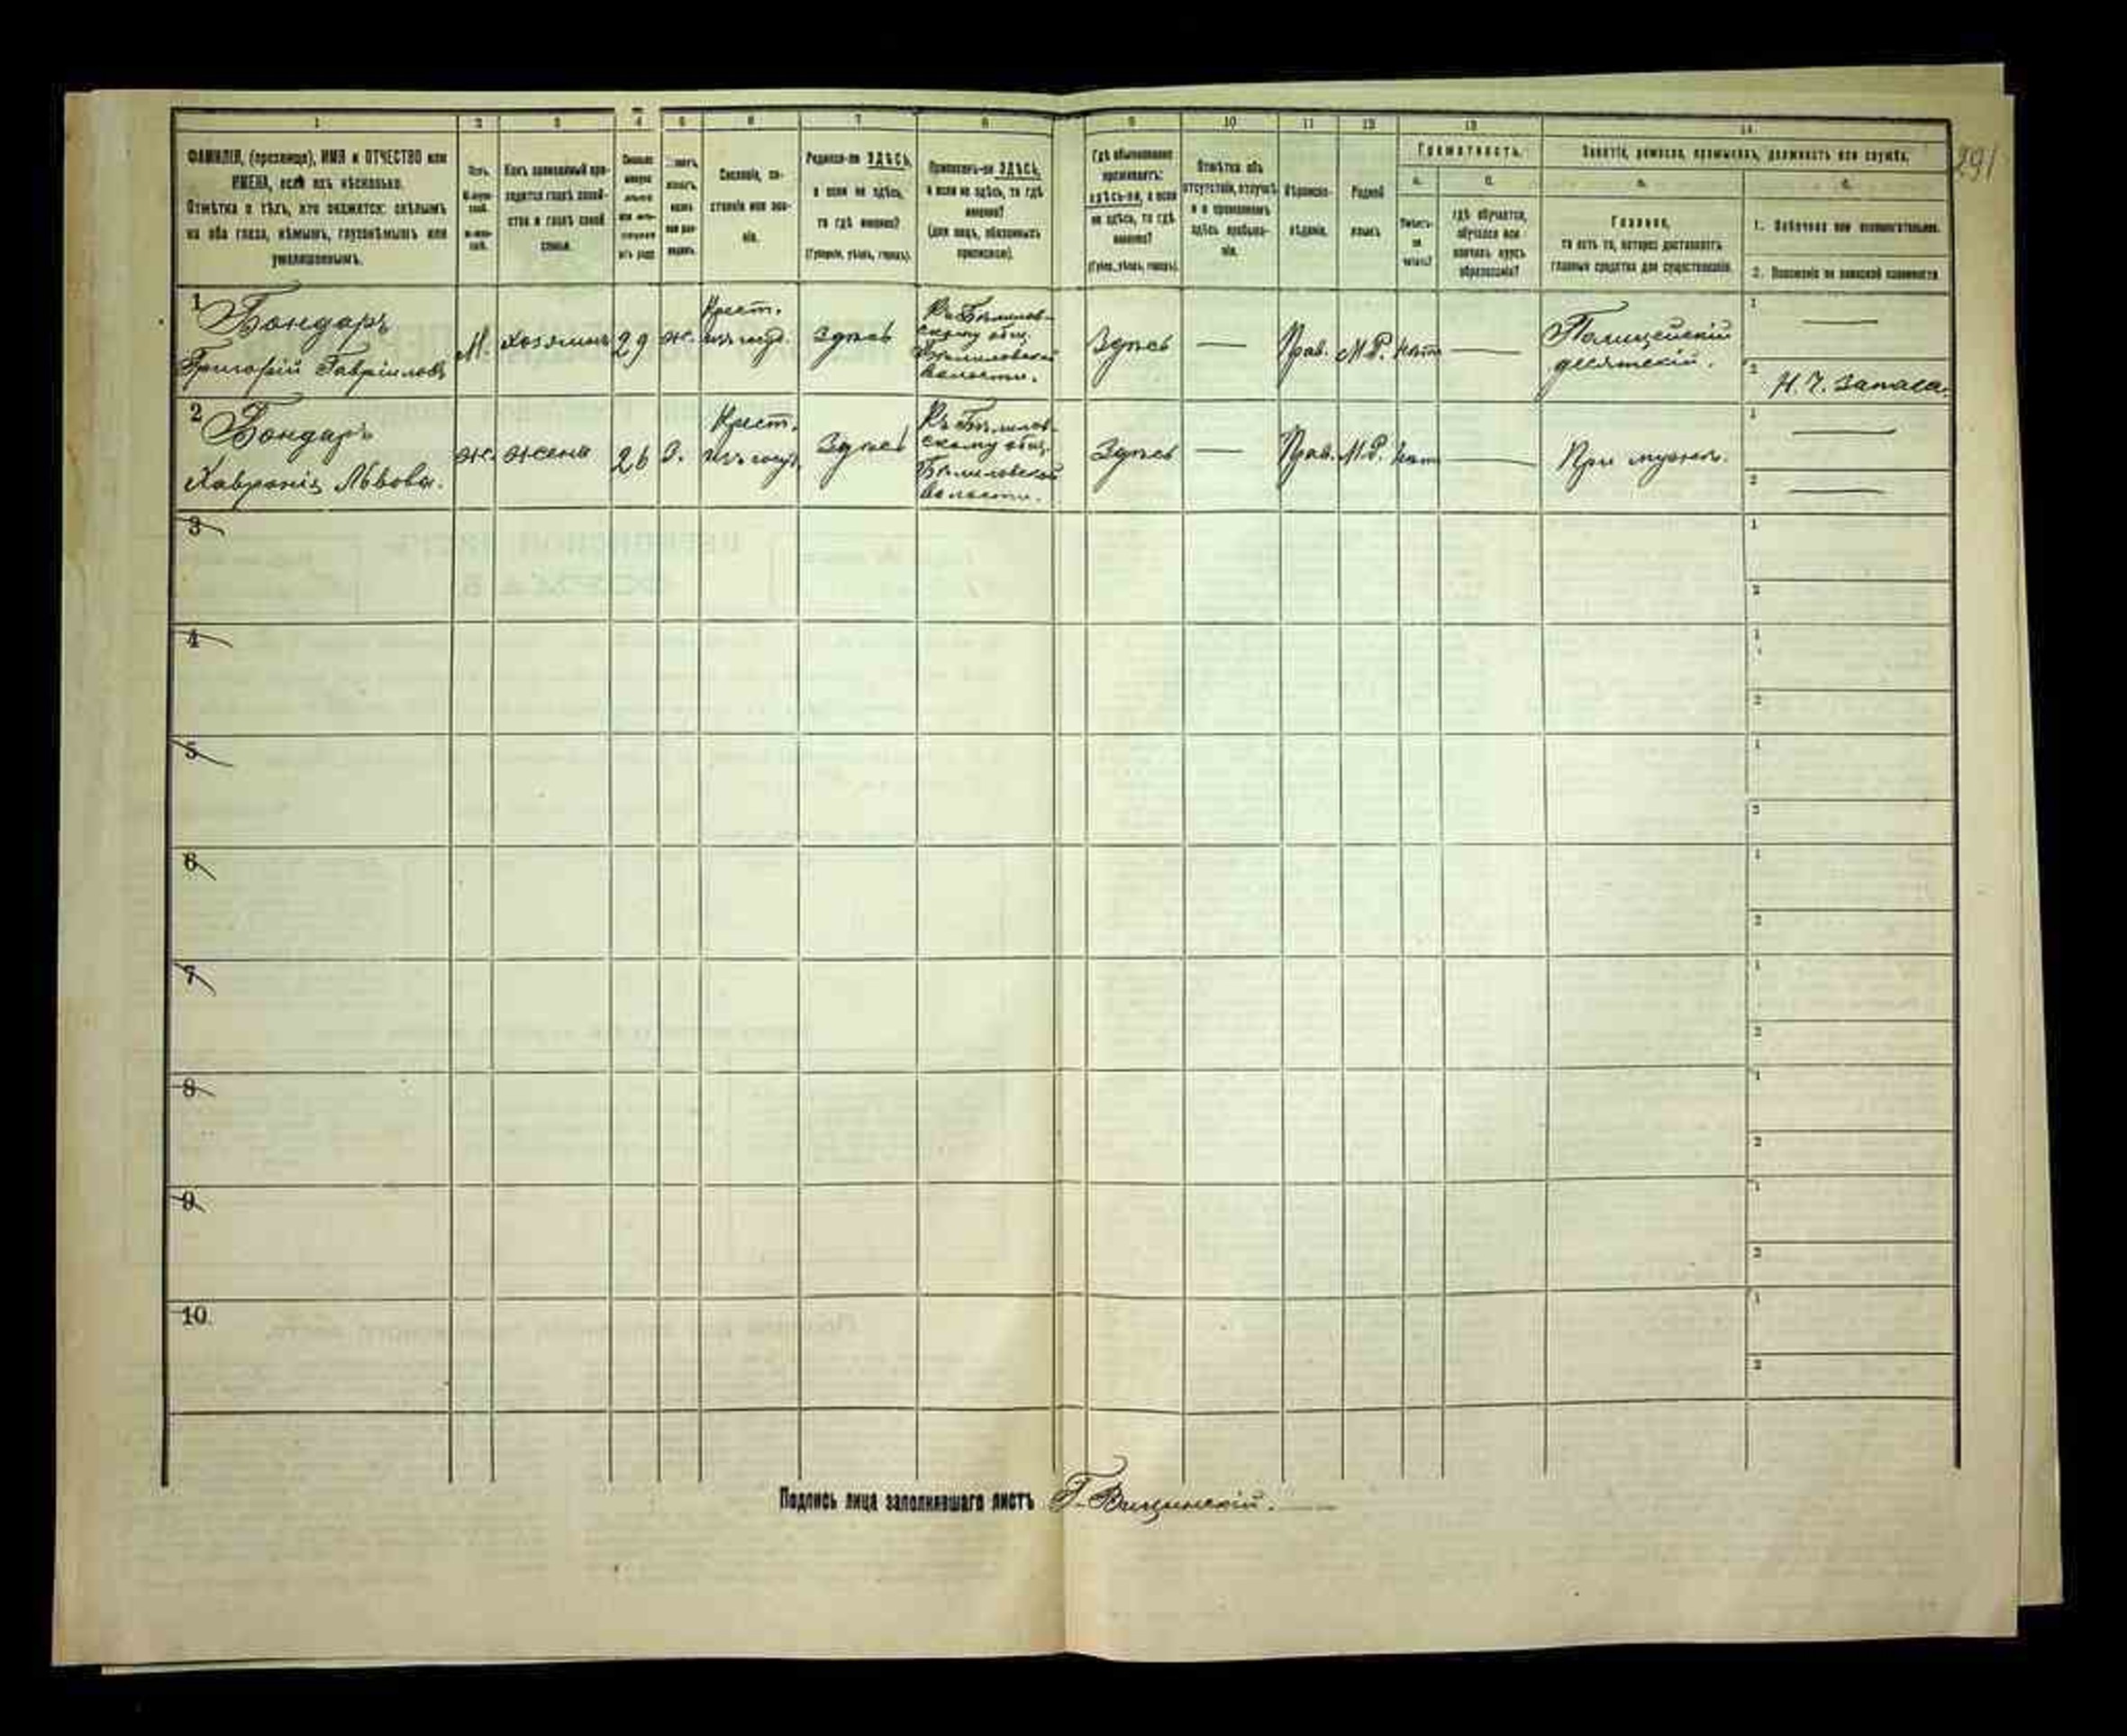 1 2 3 4 5 6 7 8 9 10 11 12 13 14
291
ФАМИЛІЯ, (прозвище), ИМЯ и ОТЧЕСТВО или
ИМЕНА, если ихъ нѣсколько.
Отмѣтка о тѣхъ, кто окажется: слѣпымъ
на оба глаза, нѣмымъ, глухонѣмымъ или
умалишеннымъ.
Полъ.
Какъ записанный при-
ходится главѣ хозяй-
ства и главѣ своей
семьи.
Сословіе, со-
стояніе или зва-
ніе.
Родился-ли ЗДѢСЬ,
а если не здѣсь,
то гдѣ именно?
(Губернія, уѣздъ, городъ).
Приписанъ-ли ЗДѢСЬ,
а если не здѣсь, то гдѣ
именно?
(для лицъ, обязанныхъ
припискою).
Гдѣ обыкновенно
проживаетъ:
здѣсь-ли, а если
не здѣсь, то гдѣ
именно?
(Губер., уѣздъ, городъ).
Отмѣтка объ
отсутствіи, отлучкѣ
и о временномъ
здѣсь пребыва-
ніи.
Вѣроиспо-
вѣданіе.
Родной
языкъ
Грамотность.
а.
Умѣетъ-
ли
читать?
б.
гдѣ обучается,
обучался или
кончилъ курсъ
образованія?
Занятіе, ремесло, промыселъ, должность или служба.
а.
Главное,
то есть то, которое доставляетъ
главныя средства для существованія.
б.
1. Побочное или вспомогательное.
2. Положеніе по воинской повинности.
1 Бондарь
Григорій Гавріиловъ
М. хозяинъ 29 ж.
Крест.
изъ госуд.
Здѣсь
Къ Бѣлилов-
скому общ.
Бѣлиловской
волости.
Здѣсь — Прав. М.Р. нѣтъ —
Полицейскій
десятскій.
1 —
2 Н. Ч. запаса.
2 Бондарь
Хавронія Львова.
Ж. жена 26 З.
Крест.
изъ госуд.
Здѣсь
Къ Бѣлилов-
скому общ.
Бѣлиловской
волости.
Здѣсь — Прав. М.Р. нѣтъ —
При мужѣ.
1 —
2 —
3 1
2
4 1
2
5 1
2
6 1
2
7 1
2
8 1
2
9 1
2
10. 1
2
Подпись лица заполнявшаго листъ Г. Вицинскій.